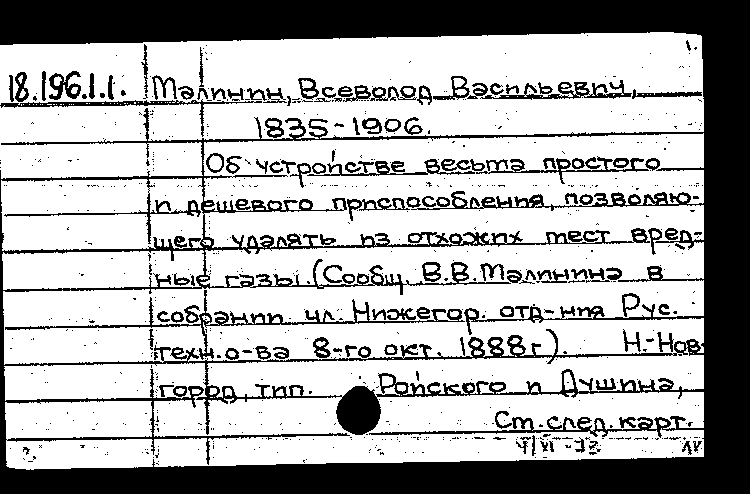 1.
18.196.1.1. Малинин, Всеволод Васильевич,
1835-1906.
Об устройстве весьма простого
и дешевого приспособления, позволяю-
щего удалять из отхожих мест вред-
ные газы. (Сообщ. В.В. Малинина в
собрании чл. Нижегор. отд-ния Рус.
техн. о-ва 8-го окт. 1888г). Н.-Нов-
город, тип. Ройского и Душина,
См. след. карт.